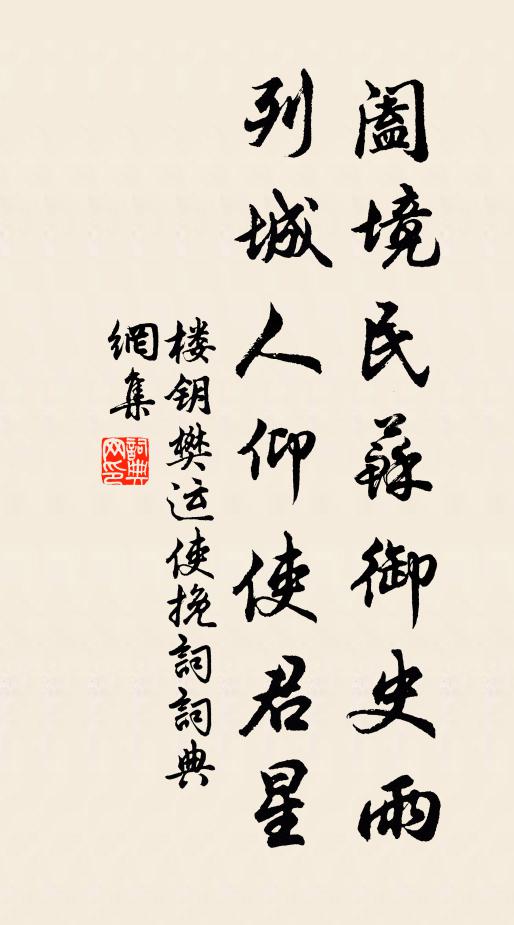 阖境民蘇御史雨
列城人仰使君星
楼钥樊运使挽詞詞典
網集
詞典網印